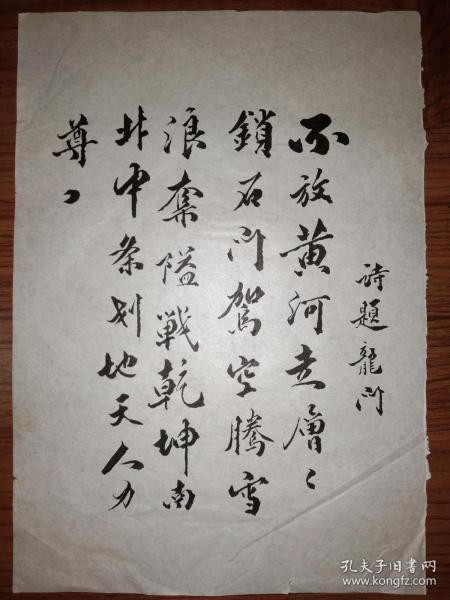 詩題龍门
不放黄河走層々
鎖石门駕空騰雪
浪奪隘戰乾坤南
北中条划地天人力
尊
孔夫子旧书网
www.kongfz.com